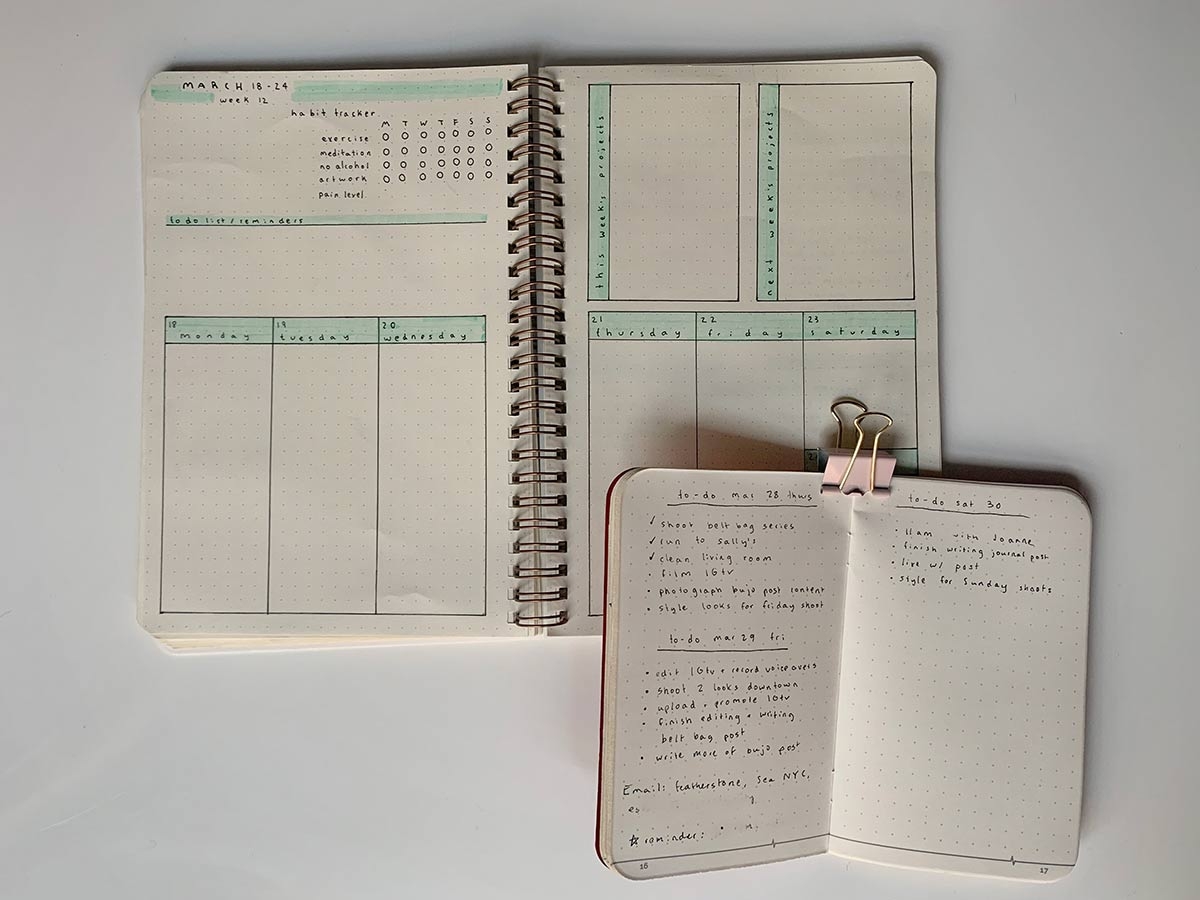 MARCH 18-24
week 12
habit tracker
M T W T F S S
exercise
meditation
no alcohol
artwork
pain level
to do list/reminders
18 monday
19 tuesday
20 wednesday
this week's projects
next week's projects
21 thursday
22 friday
23 saturday
to-do mar 28 thurs
✓ shoot belt bag series
✓ run to sally's
✓ clean living room
• film IGtv
• photograph bujo post content
• style looks for friday shoot
to-do mar 29 fri
• edit IGtv + record voiceovers
• shoot 2 looks downtown
• upload + promote IGtv
• finish editing + writing
belt bag post
• write more of bujo post
Email: featherstone, Sea NYC,
☆ reminder:
16
to-do sat 30
• 11am with Joanne
• finish writing journal post
• live w/ post
• style for Sunday shoots
17